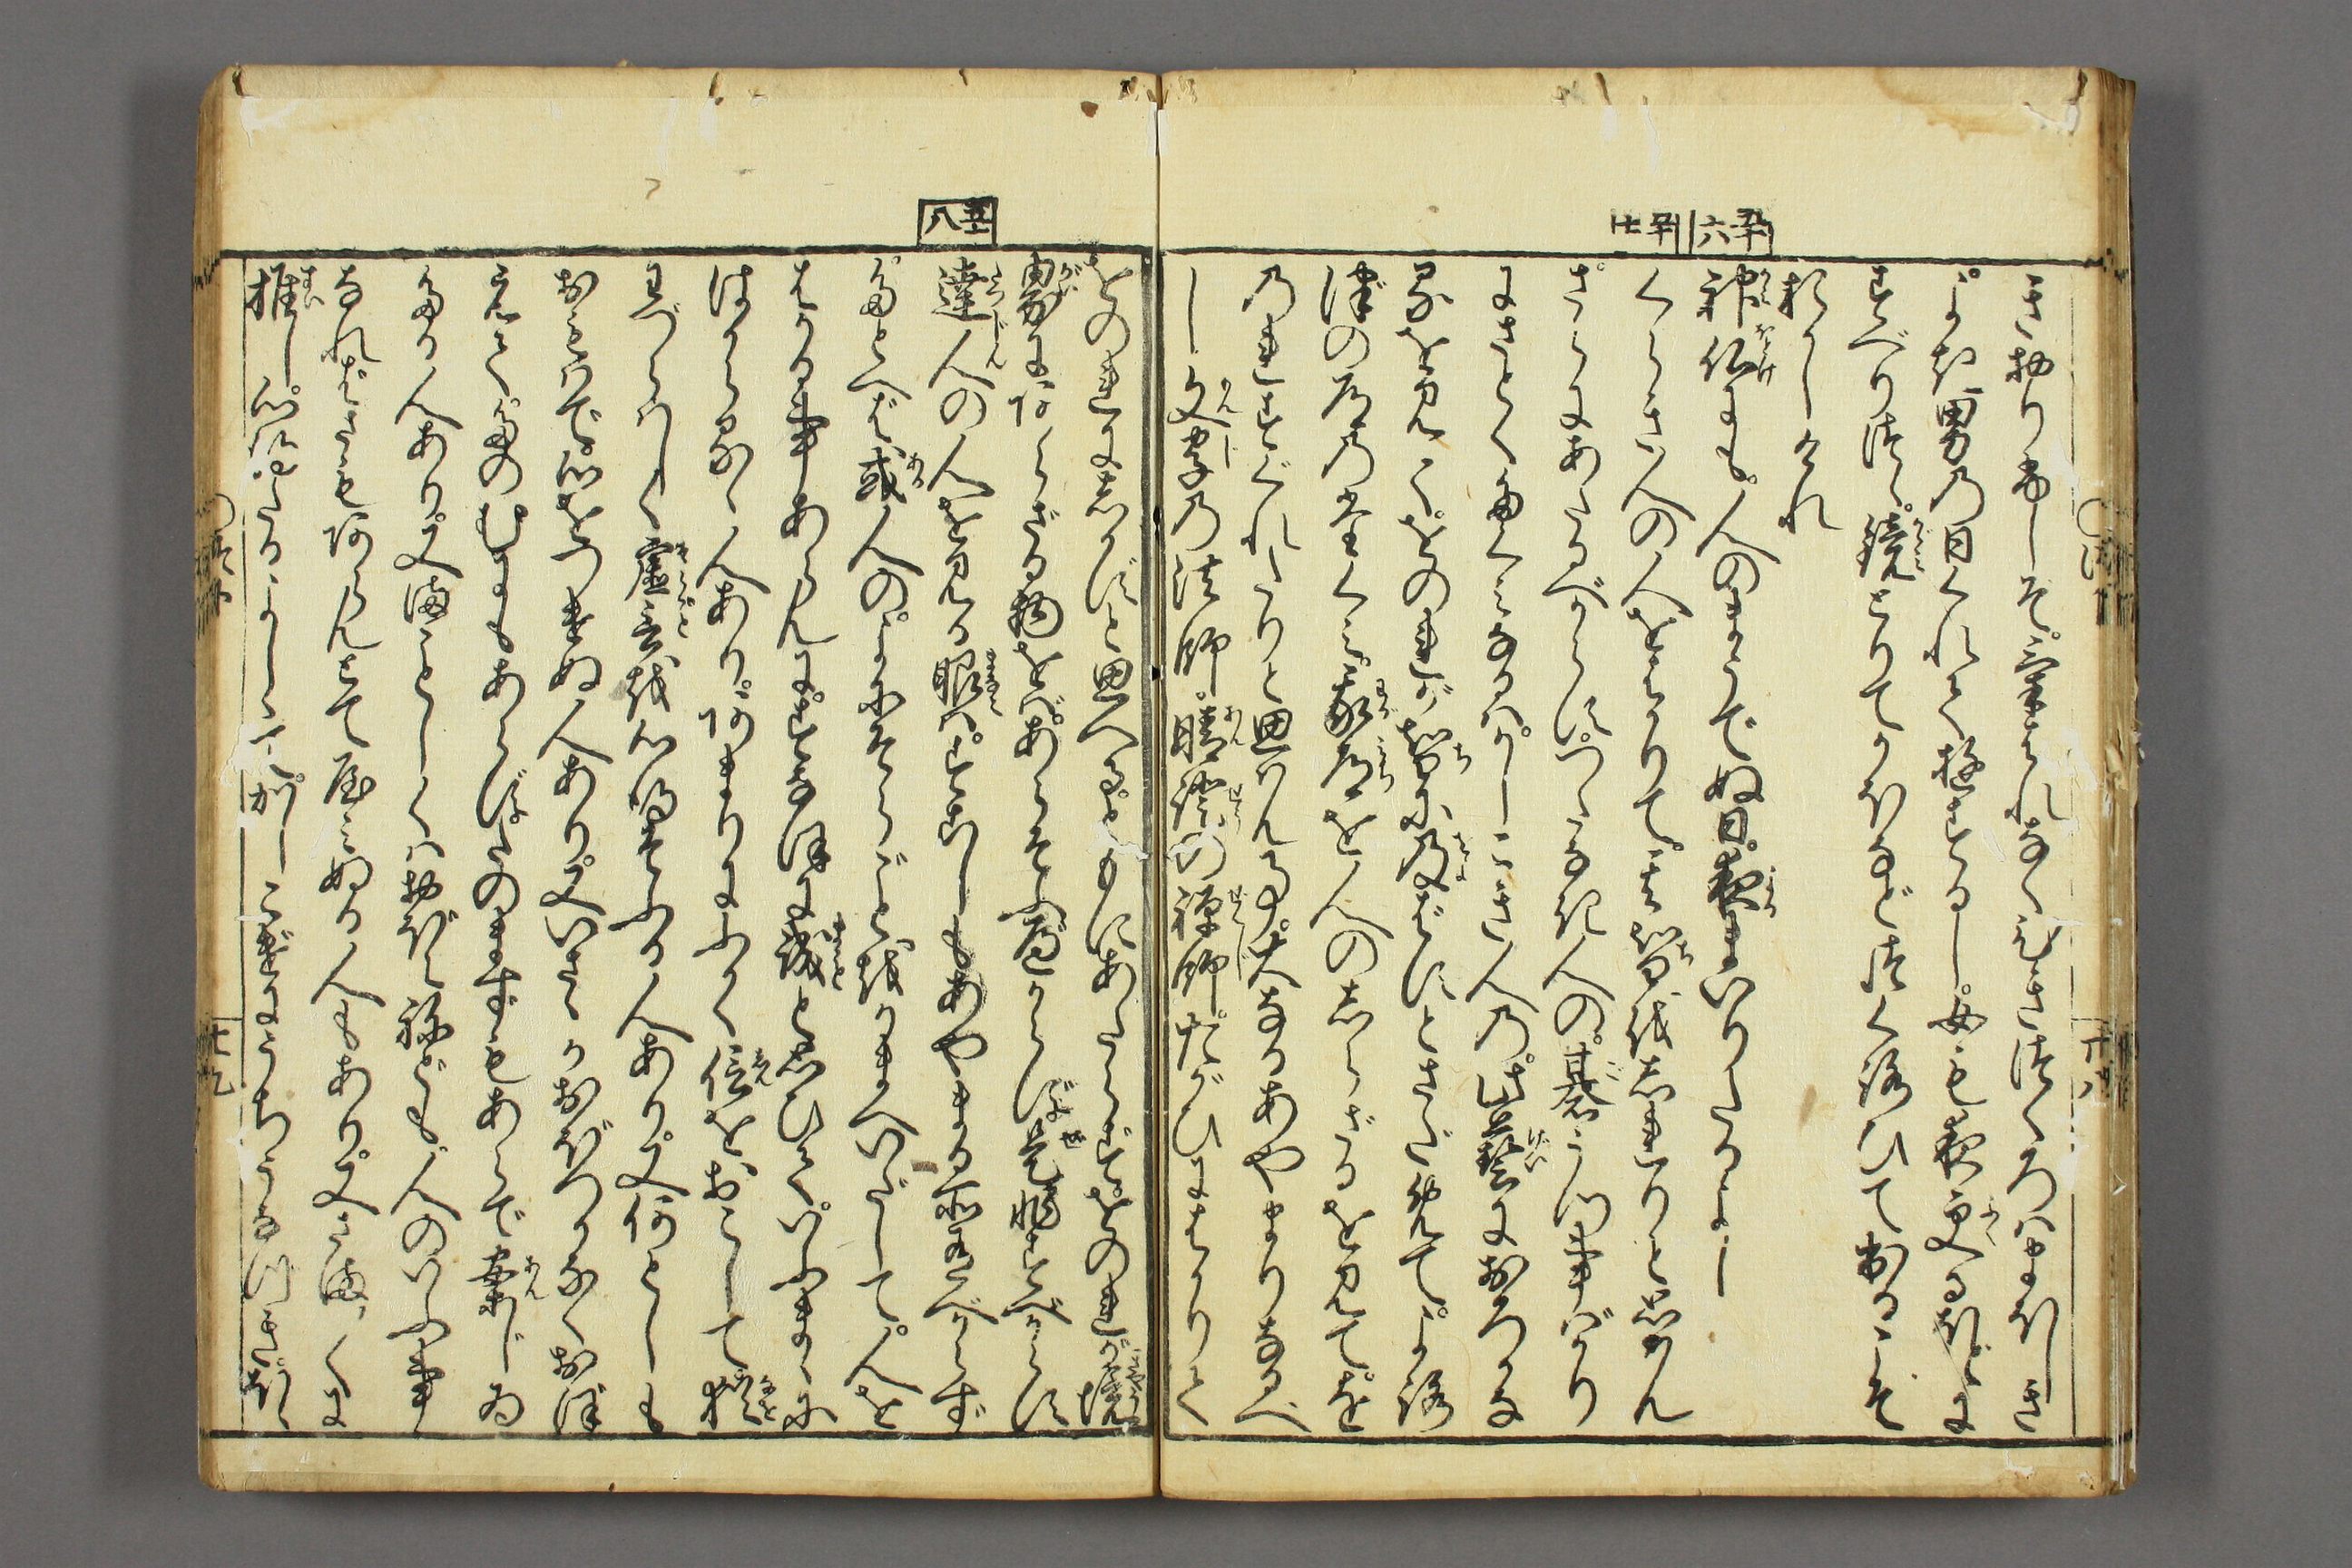 五十六
五十七
き折ふしぞ。褻はれなくひきつくろはまほしき
よき男の日くれてゆするし。女も夜更るほどに
すべりつゝ。鏡とりてかほなどつくろひて出るこそ
おかしけれ
神仏にも。人のまうでぬ日。夜まいりたるよし
くらき人の人をはかりて。其智をしれりと思はん
さらにあたるべからず。つたなき人の。碁うつ事ばかり
にさとくたくみなるは。かしこき人の。此藝におろかな
るを見て。をのれが智に及ばずとさだめて。よろ
づの道のたくみ。我道を人のしらざるを見て。を
のれすぐれたりと思はん事。大なるあやまりなるべ
し。文字の法師。暗證の禅師。たがひにはかりて
五十八
をのれにしかずと思へる。ともにあたらず。をのれが境
界にあらざる物をば。あらそふべからず。是非すべからず
達人の人を見る眼は。すこしもあやまる所有べからず
たとへば或人の。よにそらごとをかまへいだして。人を
はかる事あらんに。すなほに誠と思ひて。いふまゝに
はからるゝ人あり。あまりにふかく信をおこして。猶
わづらはしく虚言を心得そふる人あり。又何としも
おもはで。心をつけぬ人あり。又いさゝかおぼつかなくおぼ
えて。たのむにもあらず。たのまずもあらで。案じゐ
たる人あり。又まことしくは覚えねども。人のいふ事
なればさもあらんとてやみぬる人もあり。又さまゞに
推し。心得たるよしして。かしこげにうちうなづき。ほゝ